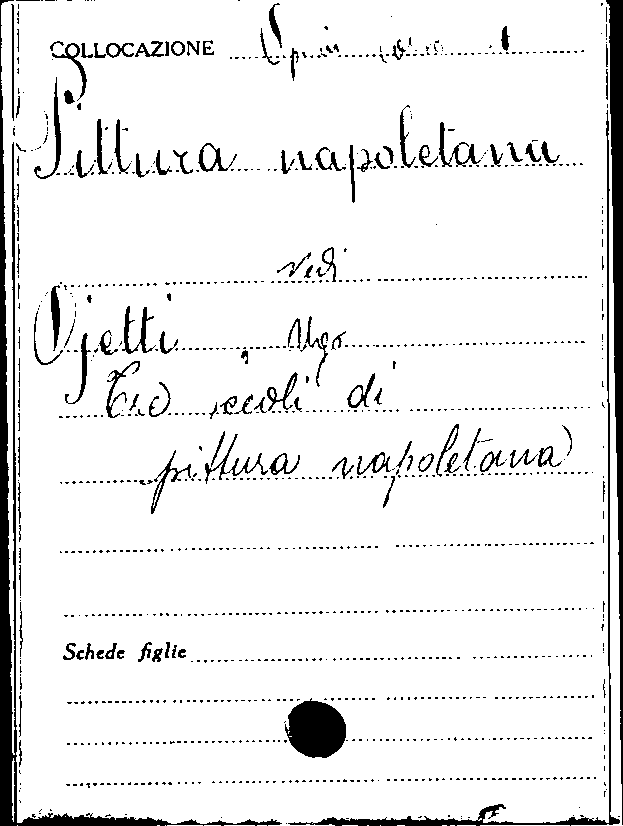 COLLOCAZIONE
Pittura napoletana
Vedi
Ojetti, Ugo
Tre secoli di
pittura napoletana
Schede figlie